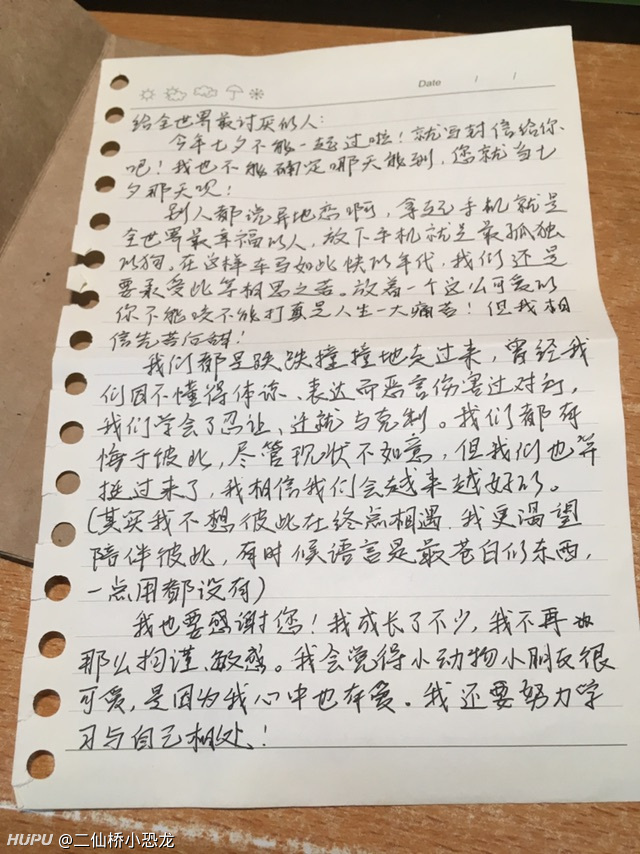 Date / /
给全世界最讨厌的人:
今年七夕不能一起过啦!就写封信给你
吧!我也不能确定哪天能到,您就当七
夕那天呗!
别人都说异地恋啊,拿起手机就是
全世界最幸福的人,放下手机就是最孤独
的狗。在这样车马如此快的年代,我们还是
要承受此等相思之苦。放着一个这么可爱的
你不能咬不能打真是人生一大痛苦!但我相
信先苦后甜!
我们都是跌跌撞撞地走过来,曾经我
们因不懂得体谅、表达而恶言伤害过对方,
我们学会了忍让、迁就与克制。我们都有
悔于彼此,尽管现状不如意,但我们也算
挺过来了,我相信我们会越来越好的。
(其实我不想彼此在终点相遇,我更渴望
陪伴彼此,有时候语言是最苍白的东西,
一点用都没有)
我也要感谢您!我成长了不少,我不再
那么拘谨、敏感。我会觉得小动物小朋友很
可爱,是因为我心中也有爱。我还要努力学
习与自己相处!
HUPU @二仙桥小恐龙